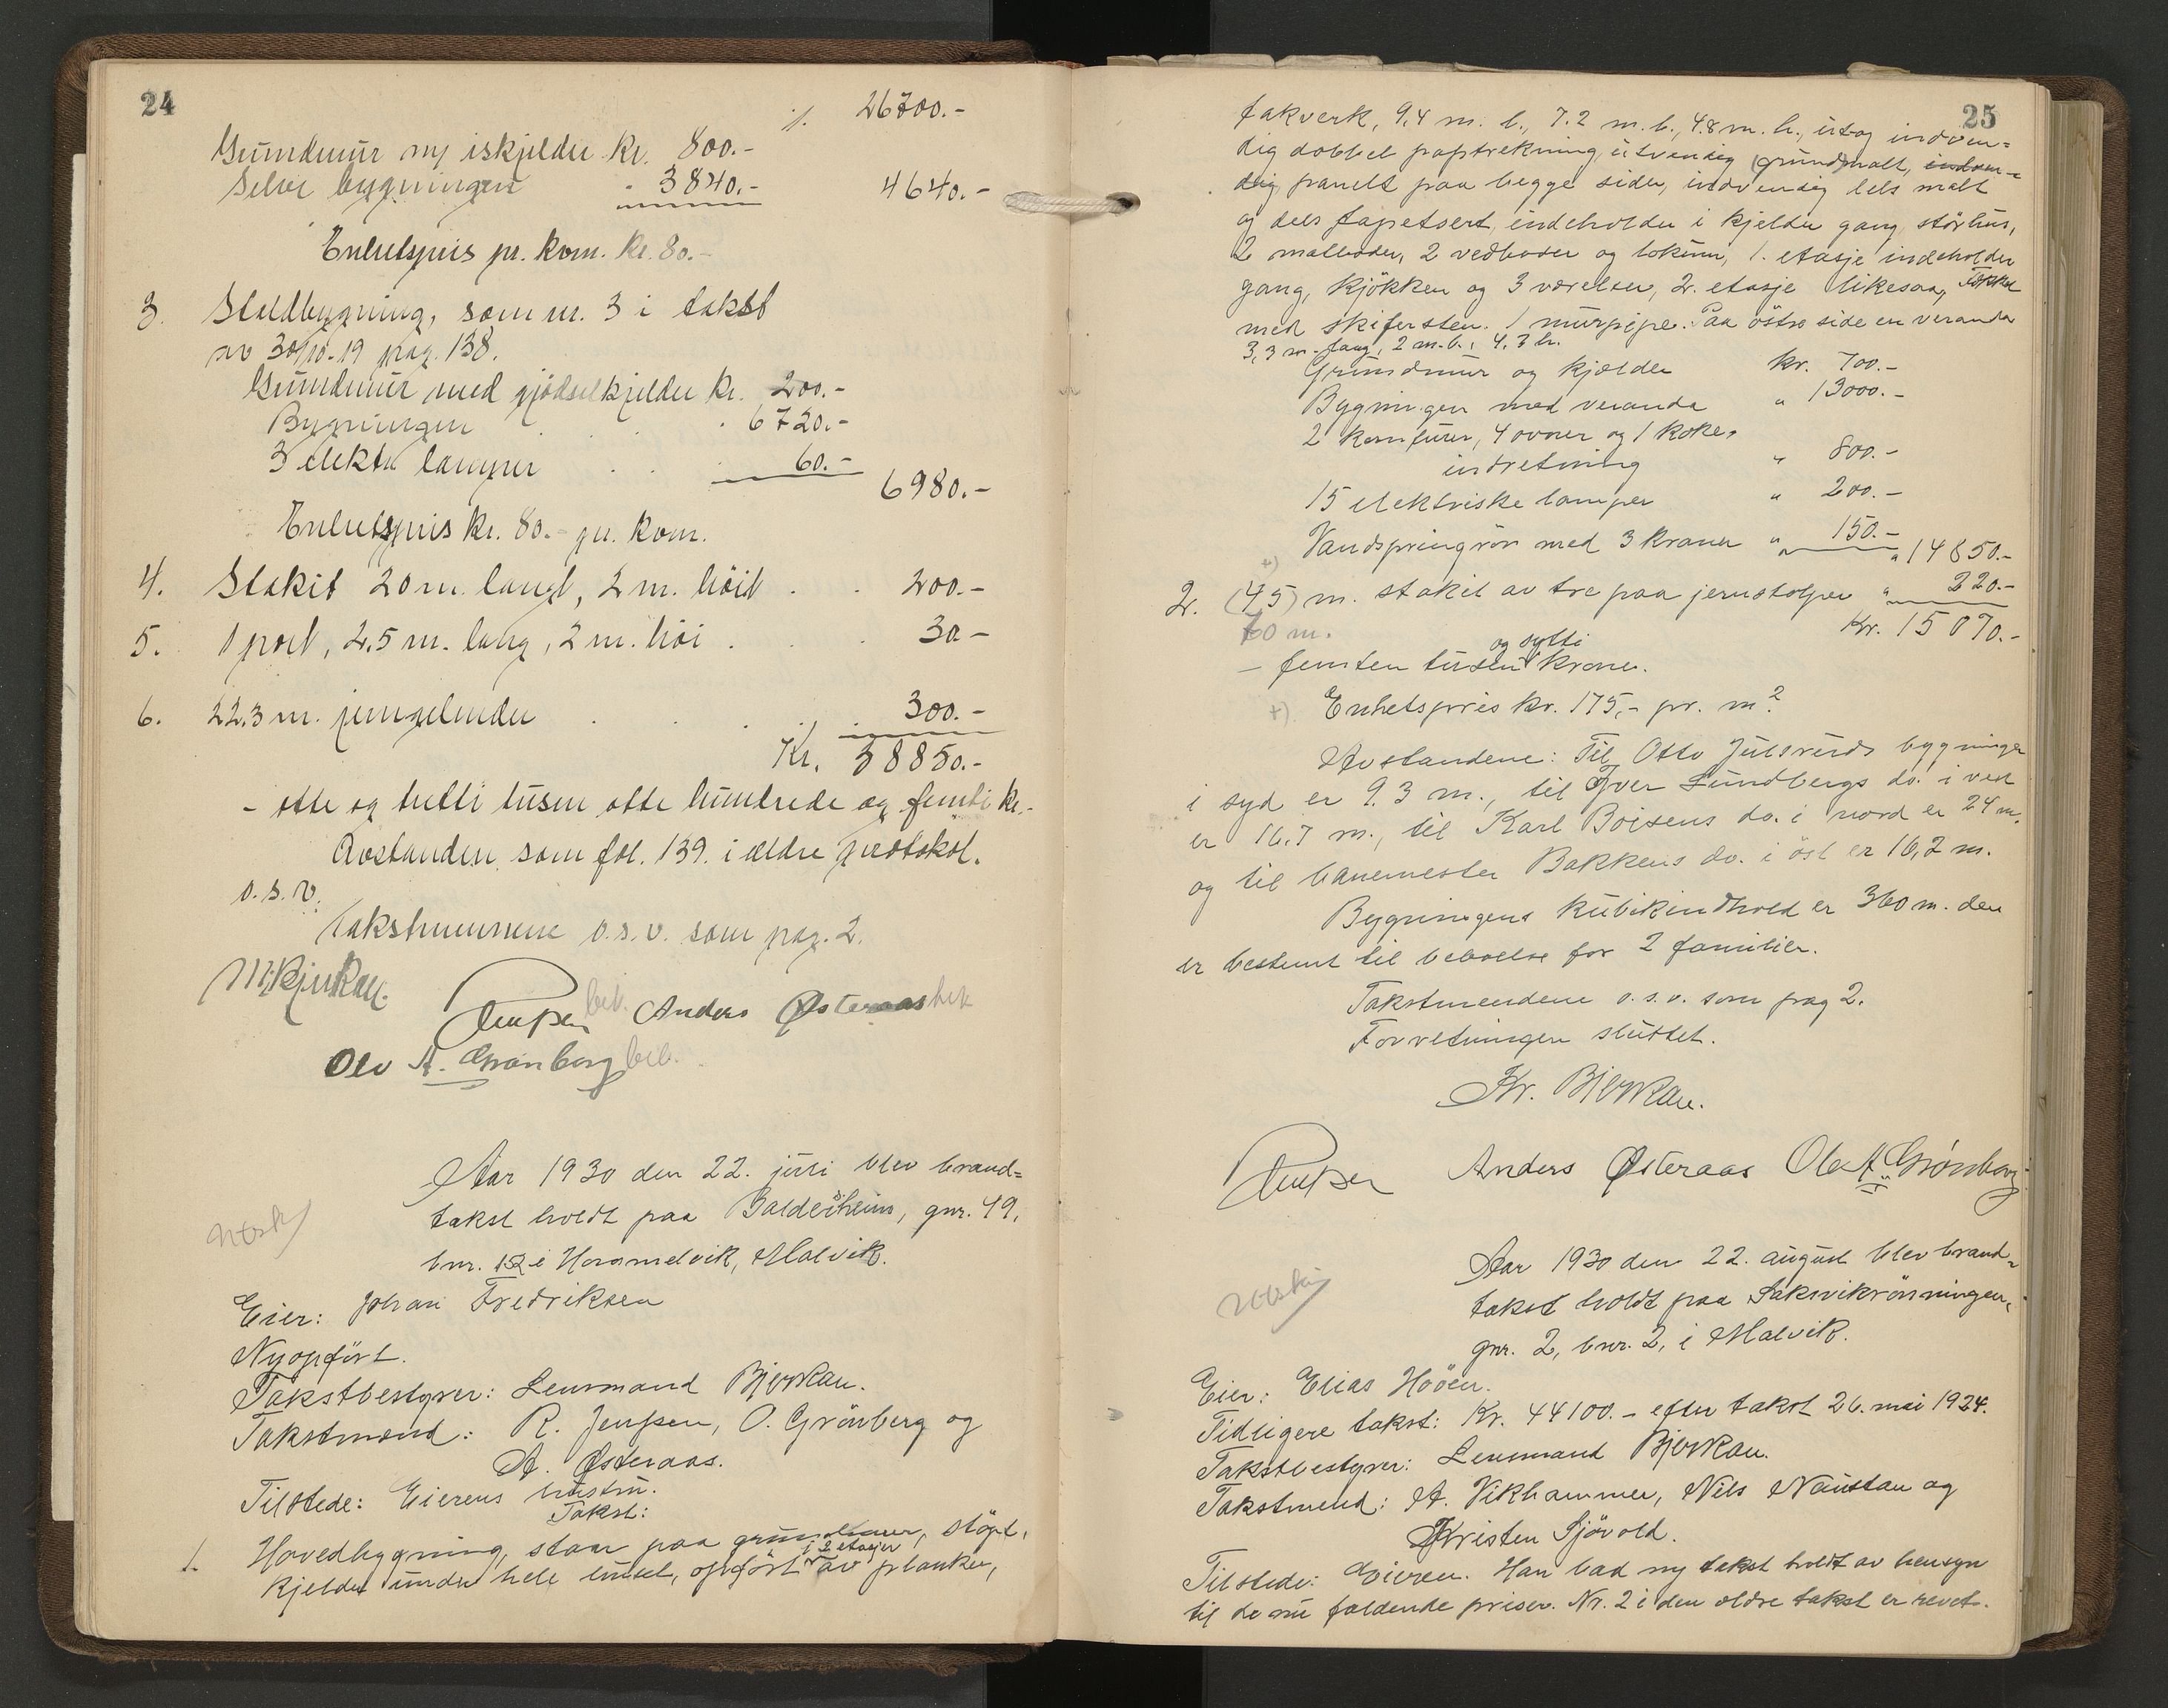 24
%. 26700.-
Grundmur m/ iskjelder Kr. 800.-
Selve bygningen " 3840.- 4640.-
Enhetspris pr. kvm. Kr. 80.-
3. Staldbygning, som nr. 3 i takst
av 30/10-19 pag. 138.
Grundmur med gjødselkjelder Kr. 200.-
Bygningen . . . 6720.-
3 elektr. lamper . . . 60.-
6980.-
Enhetspris kr. 80.- pr. kvm.
4. Stakit 20 m. langt, 2 m. höit . . 200.-
5. 1 port, 2,5 m. lang, 2 m. höi . . 30.-
6. 22.3 m. jerngelender . . . 300.-
Kr. 38850.-
- otte og tretti tusen otte hundrede og femti kr.-
Avstanden som fol. 139. i ældre protokol.
o.s.v.
Takstmennene o.s.v. som pag. 2.
Bjerkan.
Jenssen Anders Østeraas
Ole A. Grønberg
Aar 1930 den 22. juli blev brand=
takst holdt paa Baldersheim, gnr. 49,
bnr. 152 i Hommelvik, Malvik.
Eier: Johan Fredriksen
Nyopfört.
Takstbestyrer: Lensmand Bjerkan.
Takstmænd: R. Jenssen, O. Grönberg og
A. Østeraas.
Tilstede: Eierens hustru.
Takst:
1. Hovedbygning, staar paa grundmur, stöpt,
kjelder under hele huset, opfört i 2 etasjer av planker,
25
fakverk, 9,4 m. l., 7.2 m. b., 4.8 m. h., ut og indven=
dig dobbel paptrekning, utvendig (grund)malt, indven=
dig panelt paa begge sider, indvendig dels malt
og dels tapetsert, indeholder i kjelder gang, störhus,
2 matboder, 2 vedboder og lokum, 1. etasje indeholder
gang, kjökken og 3 værelser, 2. etasje likesaa, Tækket
med skifersten. 1 murpipe. Paa östre side en veranda
3,3 m. lang, 2 m. b., 4,3 h.
Grundmur og kjælder kr. 700.-
Bygningen med veranda " 13000.-
2 komfurer, 4 ovner og 1 koke=
indretning " 800.-
15 elektriske lamper " 200.-
Vandspringrör med 3 kraner " 150.- " 14850.-
+)
2. (45) m. stakit av tre paa jernstolper " 220.-
60 m. Kr. 15070.-
- femten tusen og sytti kroner.
+) Enhetspris kr. 175,- pr. m²
Avstandene: Til Otto Julsruds bygninger
i syd er 9.3 m., til Iver Lundbergs do. i vest
er 16.7 m., til Karl Boisens do. i nord er 24 m.
og til banemester Bakkens do. i öst er 16,2 m.
Bygningens kubikindhold er 360 m. den
er bestemt til beboelse for 2 familier.
Takstmendene o.s.v. som pag 2.
Forretningen sluttet.
Kr. Bjerkan.
Jenssen Anders Østeraas Ole A. Grønberg
Aar 1930 den 22. august blev brand=
takst holdt paa Saksvikrönningen,
gnr. 2, bnr. 2, i Malvik.
Eier: Elias Hööen.
Tidligere takst: Kr. 44100.- efter takst 26. mai 1924.
Takstbestyrer: Lensmand Bjerkan.
Takstmend: A. Vikhammer, Nils Naustan og
Kristen Sjövold.
Tilstede: Eieren. Han bad ny takst holdt av hensyn
til de nu faldende priser. Nr. 2 i den ældre takst er revet.